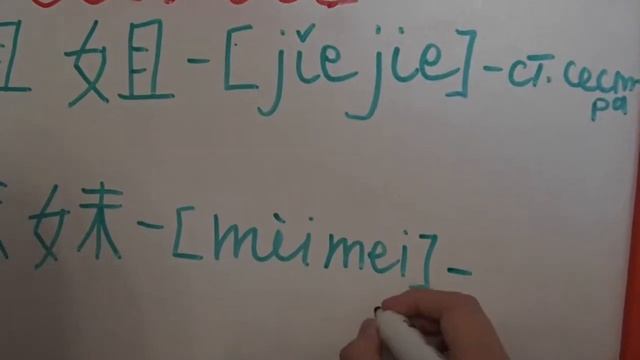 姐-[jǐejie]-ст. сест
ра
妹-[mèimei]-